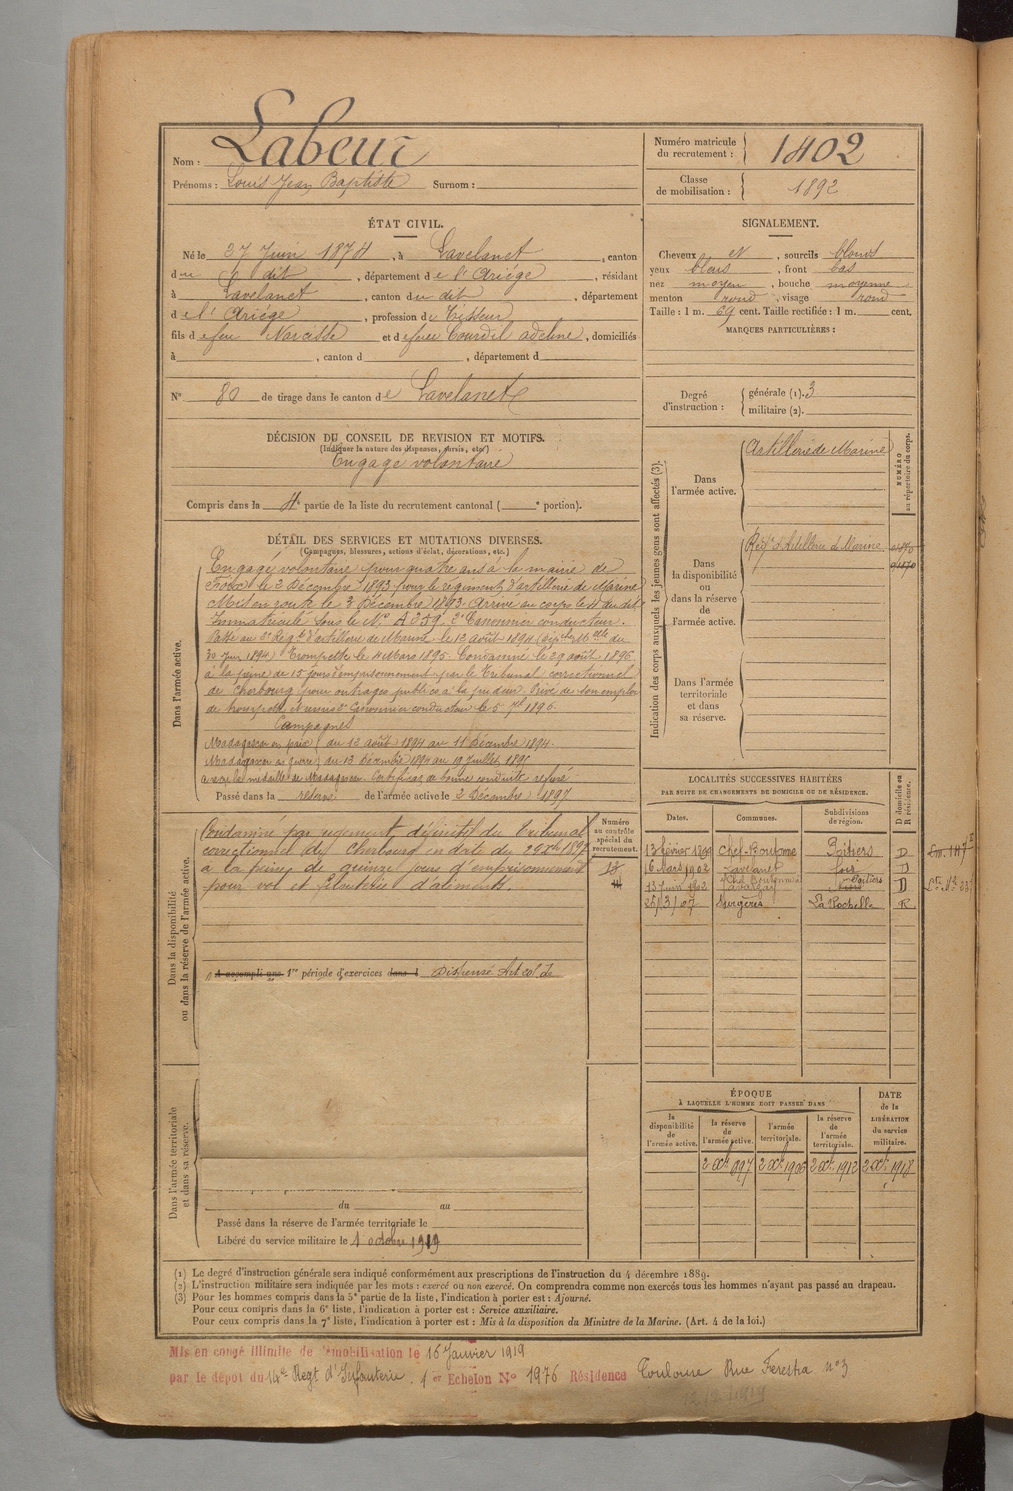 Nom : Labeur
Prénoms : Louis Jean Baptiste Surnom :
Numéro matricule du recrutement : 1402
Classe de mobilisation : 1892
ÉTAT CIVIL.
Né le 27 Juin 1874, à Lavelanet, canton
du dit, département de l'Ariége, résidant
à Lavelanet, canton du dit, département
de l'Ariége, profession de Tisseur
fils de feu Narcisse et de feue Courdil adeline, domiciliés
à , canton d , département d
N° 80 de tirage dans le canton de Lavelanet
SIGNALEMENT.
Cheveux N, sourcils blonds
yeux bleus, front bas
nez moyen, bouche moyenne
menton rond, visage rond
Taille : 1 m. 69 cent. Taille rectifiée : 1 m. cent.
MARQUES PARTICULIÈRES :
Degré d'instruction : générale (1). 3
militaire (2).
DÉCISION DU CONSEIL DE REVISION ET MOTIFS.
(Indiquer la nature des dispenses, sursis, etc.)
Engagé volontaire
Compris dans la 4e partie de la liste du recrutement cantonal ( e portion).
DÉTAIL DES SERVICES ET MUTATIONS DIVERSES.
(Campagnes, blessures, actions d'éclat, décorations, etc.)
Dans l'armée active.
Engagé volontaire pour quatre ans à la mairie de
Foix le 2 Décembre 1893 pour le régiment d'artillerie de Marine
Mis en route le 3 Décembre 1893. Arrivé au corps le 4 du dit
Immatriculé sous le N° A 259. 2e Canonnier conducteur.
Passé au 2e Régt d'artillerie de Marine le 12 août 1894
30 Juin 1894) Trompette le 4 Mars 1895. Condamné le 29 août 1896
à la peine de 15 jours d'emprisonnement par le Tribunal correctionnel
de Cherbourg pour outrages publics à la pudeur. Privé de son emploi
de trompette et remis 2e Canonnier conducteur le 5 7bre 1896.
Campagnes
Madagascar en paix (du 12 août 1894 au 11 Décembre 1894.
Madagascar en guerre) du 12 Décembre 1894 au 19 Juillet 1895
a reçu la médaille de Madagascar. Certificat de bonne conduite refusé.
Passé dans la réserve de l'armée active le 2 Décembre 1897
Indication des corps auxquels les jeunes gens sont affectés (3).
NUMÉRO au répertoire du corps.
Dans l'armée active.
Artillerie de Marine
Dans la disponibilité ou dans la réserve de l'armée active.
Régt d'Artillerie de Marine.
Dans l'armée territoriale et dans sa réserve.
LOCALITÉS SUCCESSIVES HABITÉES
PAR SUITE DE CHANGEMENTS DE DOMICILE OU DE RÉSIDENCE.
Dates. Communes. Subdivisions de région. D domicile ou R résidence.
13 février 1899 Chef-Boutonne Poitiers D
16 Mars 1902 Lavelanet foix D
13 Juin 1902 Chef Boutonne Poitiers D
25/3/07 Surgères La Rochelle R
Dans la disponibilité ou dans la réserve de l'armée active.
Numéro au contrôle spécial du recrutement.
Condamné par jugement définitif du Tribunal
correctionnel de Cherbourg en date du 29 Xbre 1897
à la peine de quinze jours d'emprisonnement
pour vol et filouterie d'aliments.
A accompli une 1re période d'exercices dans l Dispensé Art col de
Dans l'armée territoriale et dans sa réserve.
du au
Passé dans la réserve de l'armée territoriale le
Libéré du service militaire le 1 octobre 1919
ÉPOQUE
À LAQUELLE L'HOMME DOIT PASSER DANS
la disponibilité de l'armée active. la réserve de l'armée active. l'armée territoriale. la réserve de l'armée territoriale. DATE de la LIBÉRATION du service militaire.
2 Xbre 1897 2 Xbre 1906 2 Xbre 1912 2 Xbre 1918
(1) Le degré d'instruction générale sera indiqué conformément aux prescriptions de l'instruction du 4 décembre 1889.
(2) L'instruction militaire sera indiquée par les mots : exercé ou non exercé. On comprendra comme non exercés tous les hommes n'ayant pas passé au drapeau.
(3) Pour les hommes compris dans la 5e partie de la liste, l'indication à porter est : Ajourné.
Pour ceux compris dans la 6e liste, l'indication à porter est : Service auxiliaire.
Pour ceux compris dans la 7e liste, l'indication à porter est : Mis à la disposition du Ministre de la Marine. (Art. 4 de la loi.)
Mis en congé illimité de démobilisation le 16 Janvier 1919
par le dépôt du 14e Regt d'Infanterie. 1er Echelon N° 1976 Résidence Toulouse Rue n° 3